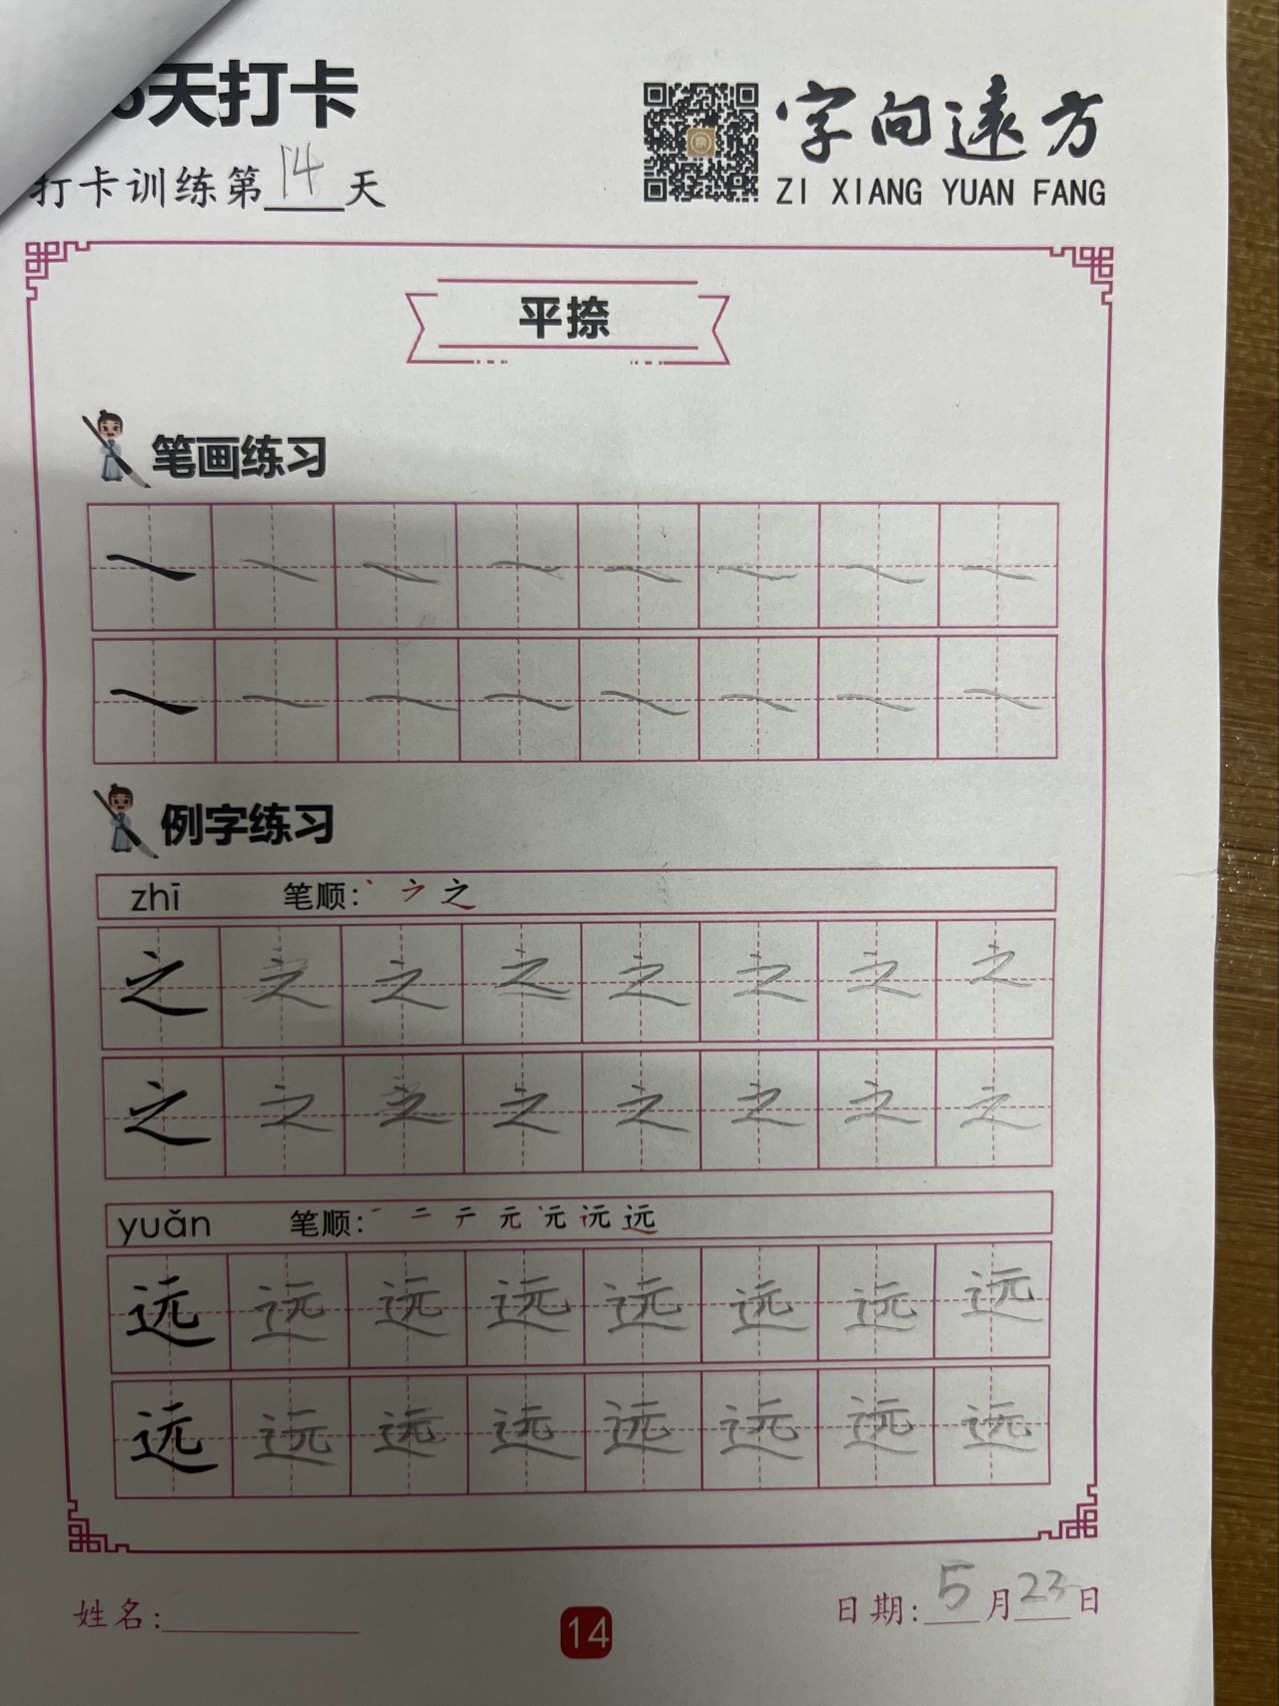 天打卡
字向遠方
ZI XIANG YUAN FANG
打卡训练第14天
平捺
笔画练习
例字练习
zhī 笔顺: 之
之 之 之 之 之 之 之 之
之 之 之 之 之 之 之 之
yuǎn 笔顺: 元 远
远 远 远 远 远 远 远 远
远 远 远 远 远 远 远 远
姓名:
14
日期: 5月23日